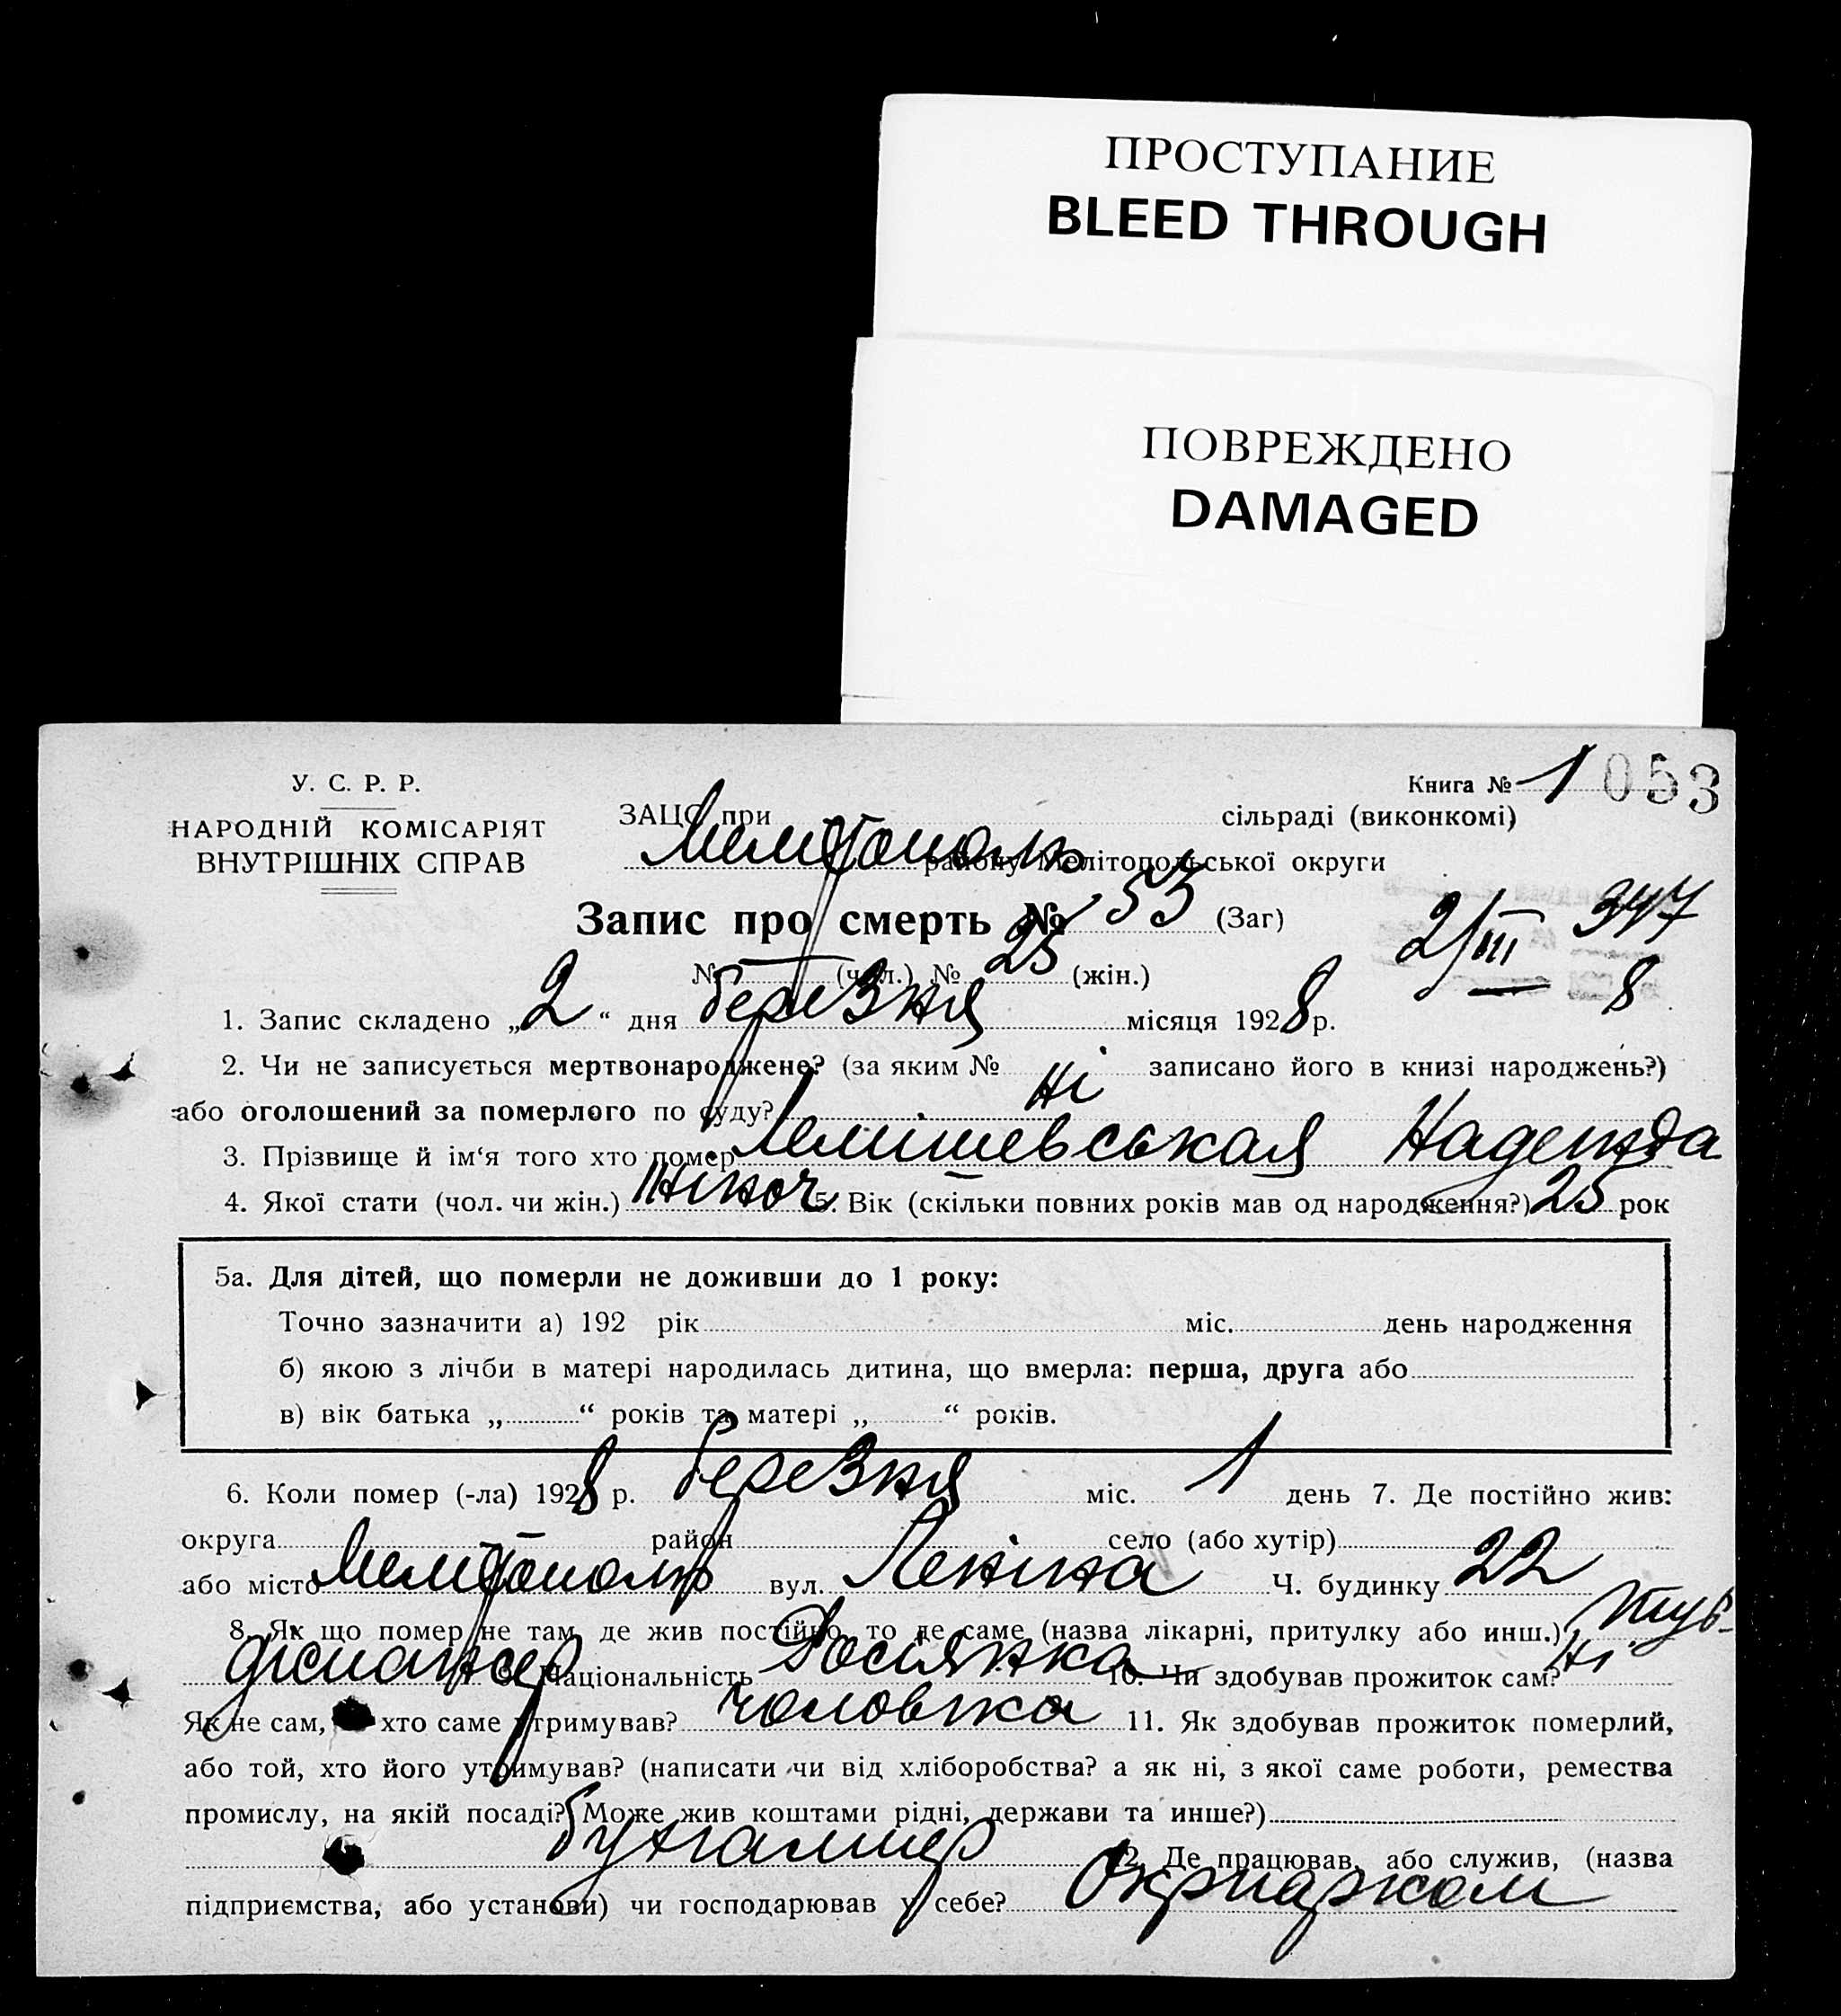 ПРОСТУПАНИЕ
BLEED THROUGH
ПОВРЕЖДЕНО
DAMAGED
У. С. Р. Р.
НАРОДНІЙ КОМІСАРІЯТ
ВНУТРІШНІХ СПРАВ
Книга № 1 053
ЗАЦС при сільраді (виконкомі)
Мелітополь району Мелітопольської округи
Запис про смерть № 53 (Заг)
2/III 347
№ — (чол.) № 25 (жін.)
8
1. Запис складено „2“ дня березня місяця 1928 р.
2. Чи не записується мертвонароджене? (за яким № записано його в книзі народжень?)
або оголошений за померлого по суду? Ні
3. Прізвище й ім‘я того хто помер Надежда
4. Якої стати (чол. чи жін.) жіноч 5. Вік (скільки повних років мав од народження?) 25 рок
5а. Для дітей, що померли не доживши до 1 року:
Точно зазначити а) 192 рік міс. день народження
б) якою з лічби в матері народилась дитина, що вмерла: перша, друга або
в) вік батька „ “ років та матері „ “ років.
6. Коли помер (-ла) 1928 р. березня міс. 1 день 7. Де постійно жив:
округа район село (або хутір)
або місто Мелітополь вул. Леніна Ч. будинку 22
8. Як що помер не там, де жив постійно, то де саме (назва лікарні, притулку або инш.) туб-
диспансер 9. Національність Росіянка 10. Чи здобував прожиток сам? Ні
Як не сам, хто саме утримував? чоловіка 11. Як здобував прожиток померлий,
або той, хто його утримував? (написати чи від хліборобства? а як ні, з якої саме роботи, ремества
промислу, на якій посаді? Може жив коштами рідні, держави та инше?)
бухгалтер 12. Де працював, або служив, (назва
підприємства, або установи) чи господарював у себе? Окрпарком